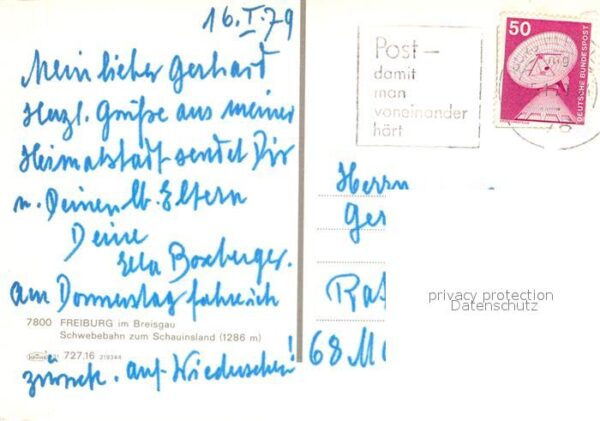 16.I.79
Mein lieber Gerhard
Herzl. Grüße aus meiner
Heimatstadt sendet Dir
u. Deinen lb. Eltern
Deine
Ella Boxberger.
am Donnerstag fahre ich
7800 FREIBURG im Breisgau
Schwebebahn zum Schauinsland (1286 m)
727.16 219344
zurück. auf Wiedersehen!
Post-
damit
man
voneinander
hört
50
DEUTSCHE BUNDESPOST
Herrn
Ger
Rat
68 M
privacy protection
Datenschutz